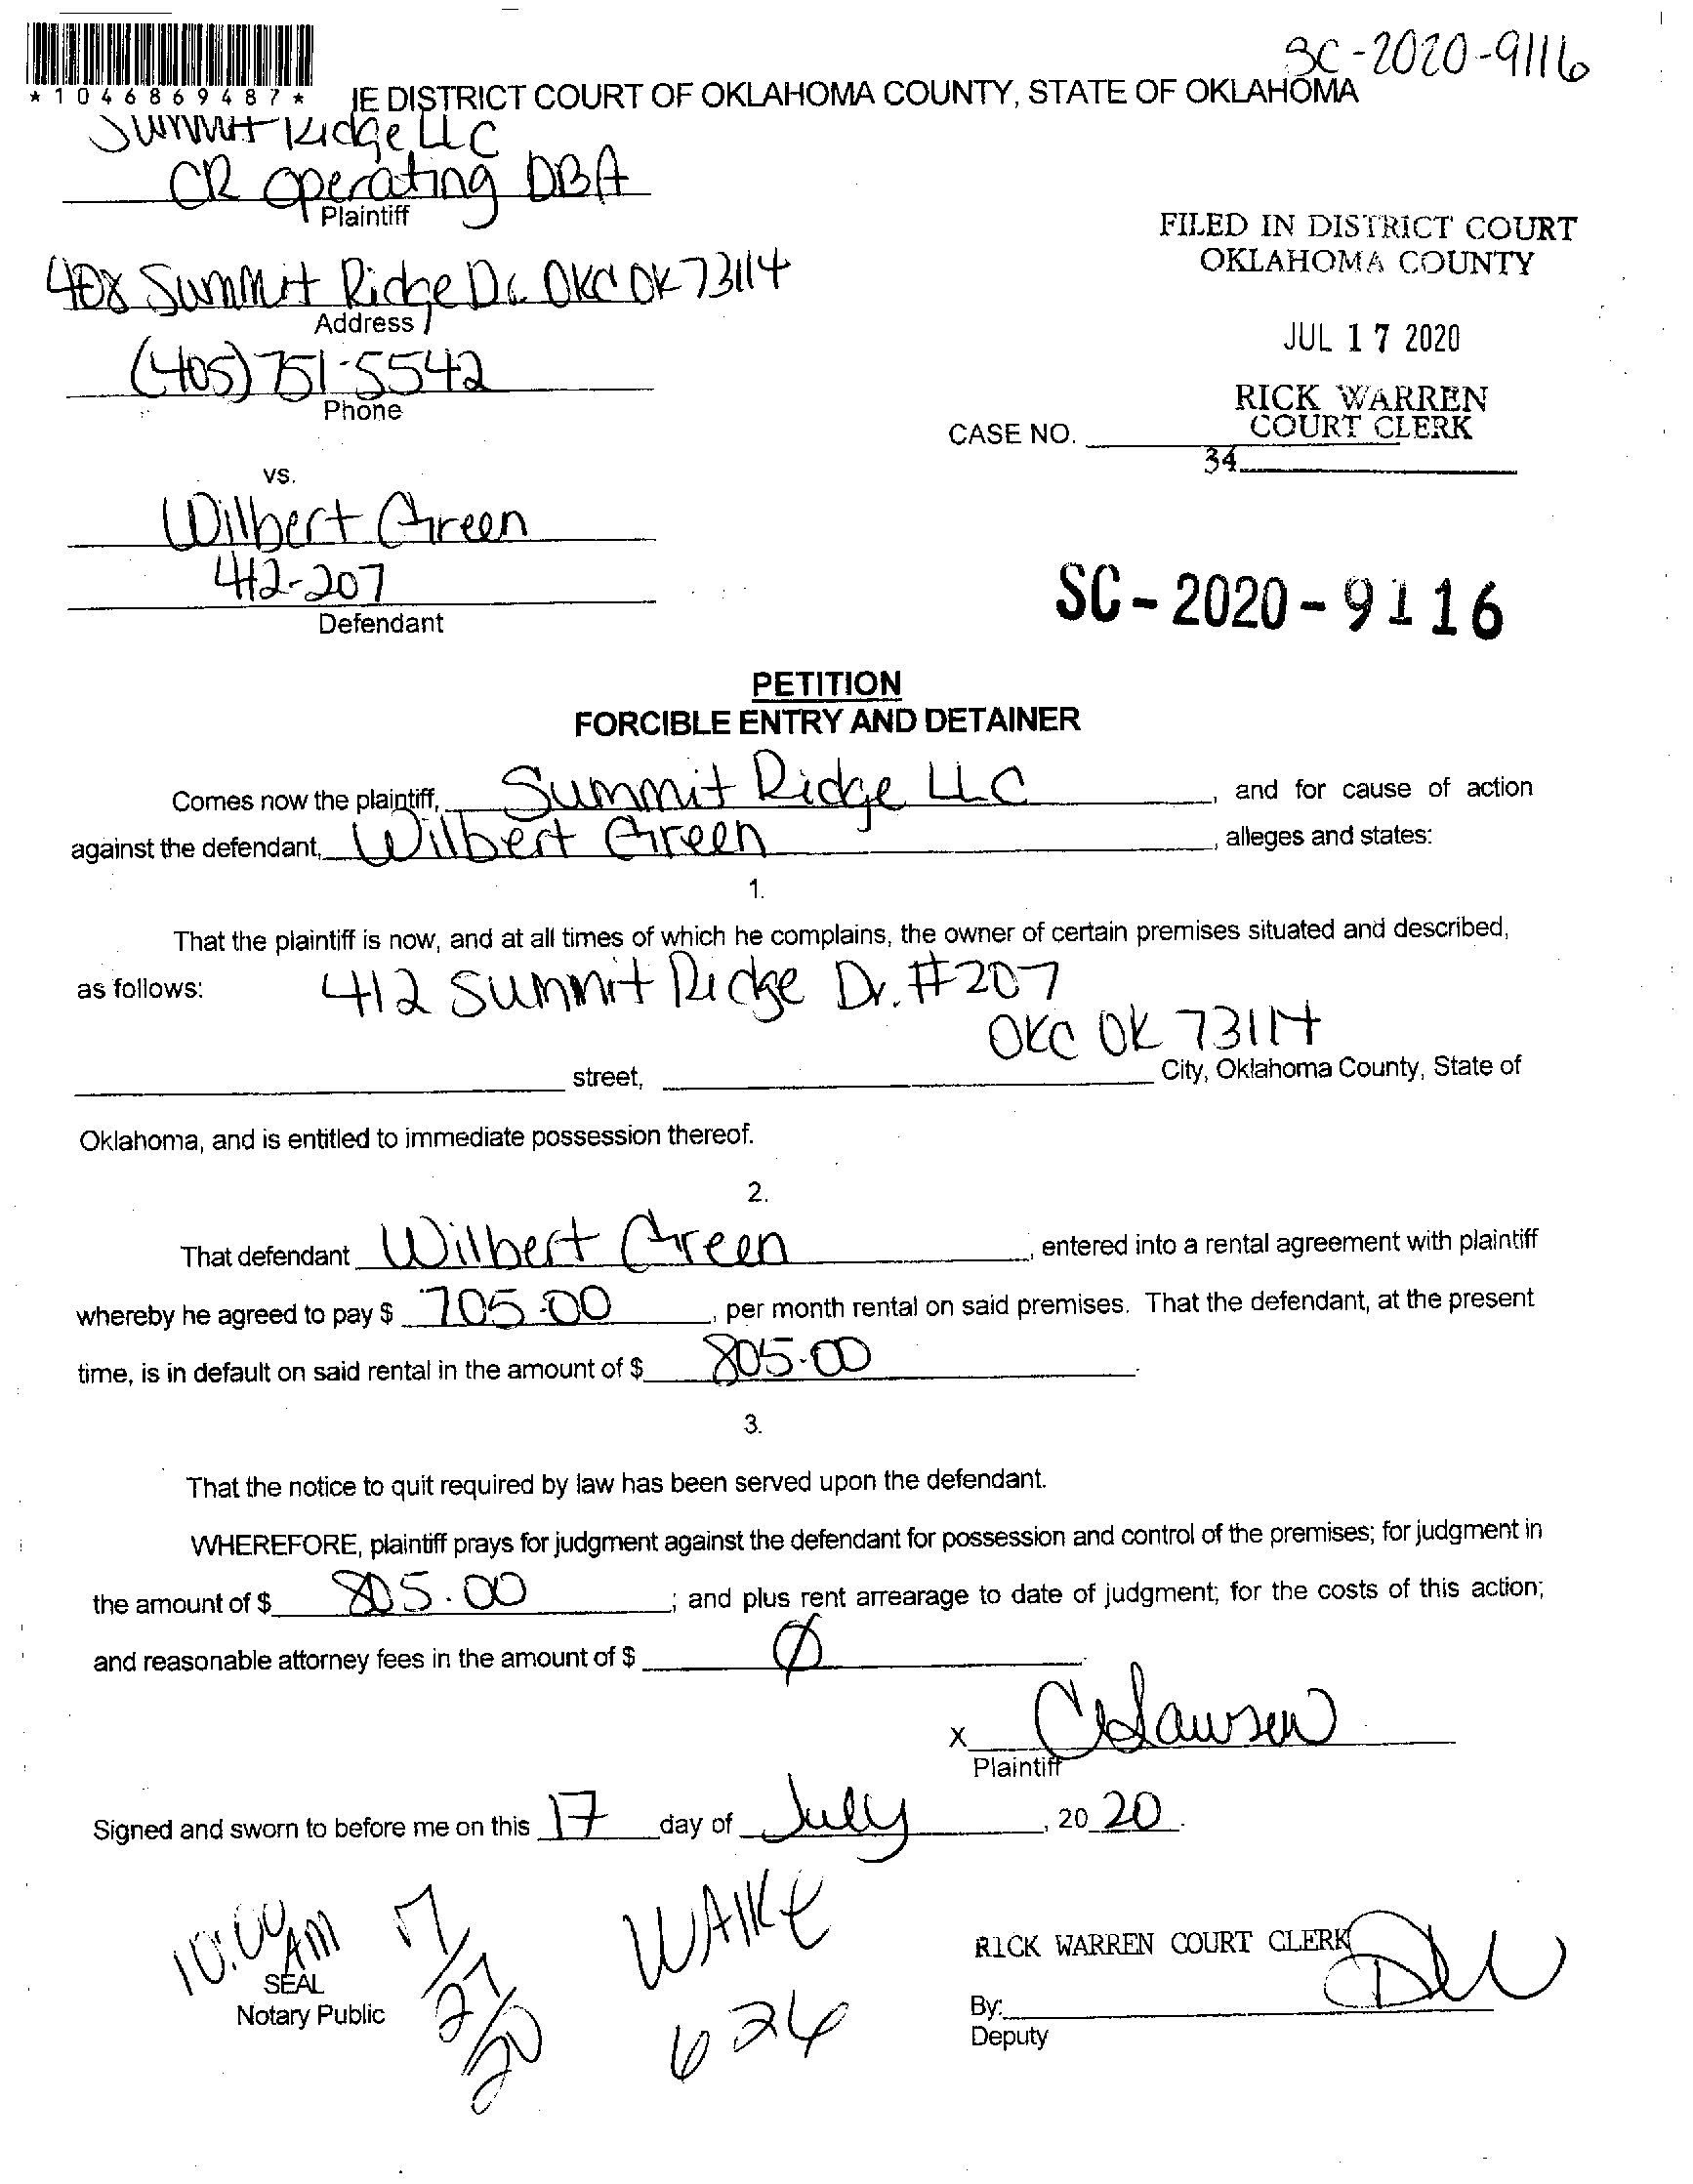 SC-2020-9116
*1046869487*
IE DISTRICT COURT OF OKLAHOMA COUNTY, STATE OF OKLAHOMA
Summit Ridge LLC
CR Operating DBA
Plaintiff
FILED IN DISTRICT COURT
OKLAHOMA COUNTY
408 Summit Ridge Dr. OKC OK 73114
Address
JUL 17 2020
(405) 751-5542
Phone
RICK WARREN
COURT CLERK
CASE NO.
34
vs.
Wilbert Green
412-207
Defendant
SC-2020-9116
PETITION
FORCIBLE ENTRY AND DETAINER
Comes now the plaintiff, Summit Ridge LLC, and for cause of action
against the defendant, Wilbert Green, alleges and states:
1.
That the plaintiff is now, and at all times of which he complains, the owner of certain premises situated and described,
as follows: 412 Summit Ridge Dr. #207
OKC OK 73114
street, City, Oklahoma County, State of
Oklahoma, and is entitled to immediate possession thereof.
2.
That defendant Wilbert Green, entered into a rental agreement with plaintiff
whereby he agreed to pay $ 705.00, per month rental on said premises. That the defendant, at the present
time, is in default on said rental in the amount of $ 805.00.
3.
That the notice to quit required by law has been served upon the defendant.
WHEREFORE, plaintiff prays for judgment against the defendant for possession and control of the premises; for judgment in
the amount of $ 805.00; and plus rent arrearage to date of judgment; for the costs of this action;
and reasonable attorney fees in the amount of $ Ø
x CLawson
Plaintiff
Signed and sworn to before me on this 17 day of July, 2020.
10:00 AM 7/27/20
WAIKE
624
SEAL
Notary Public
RICK WARREN COURT CLERK
By:
Deputy